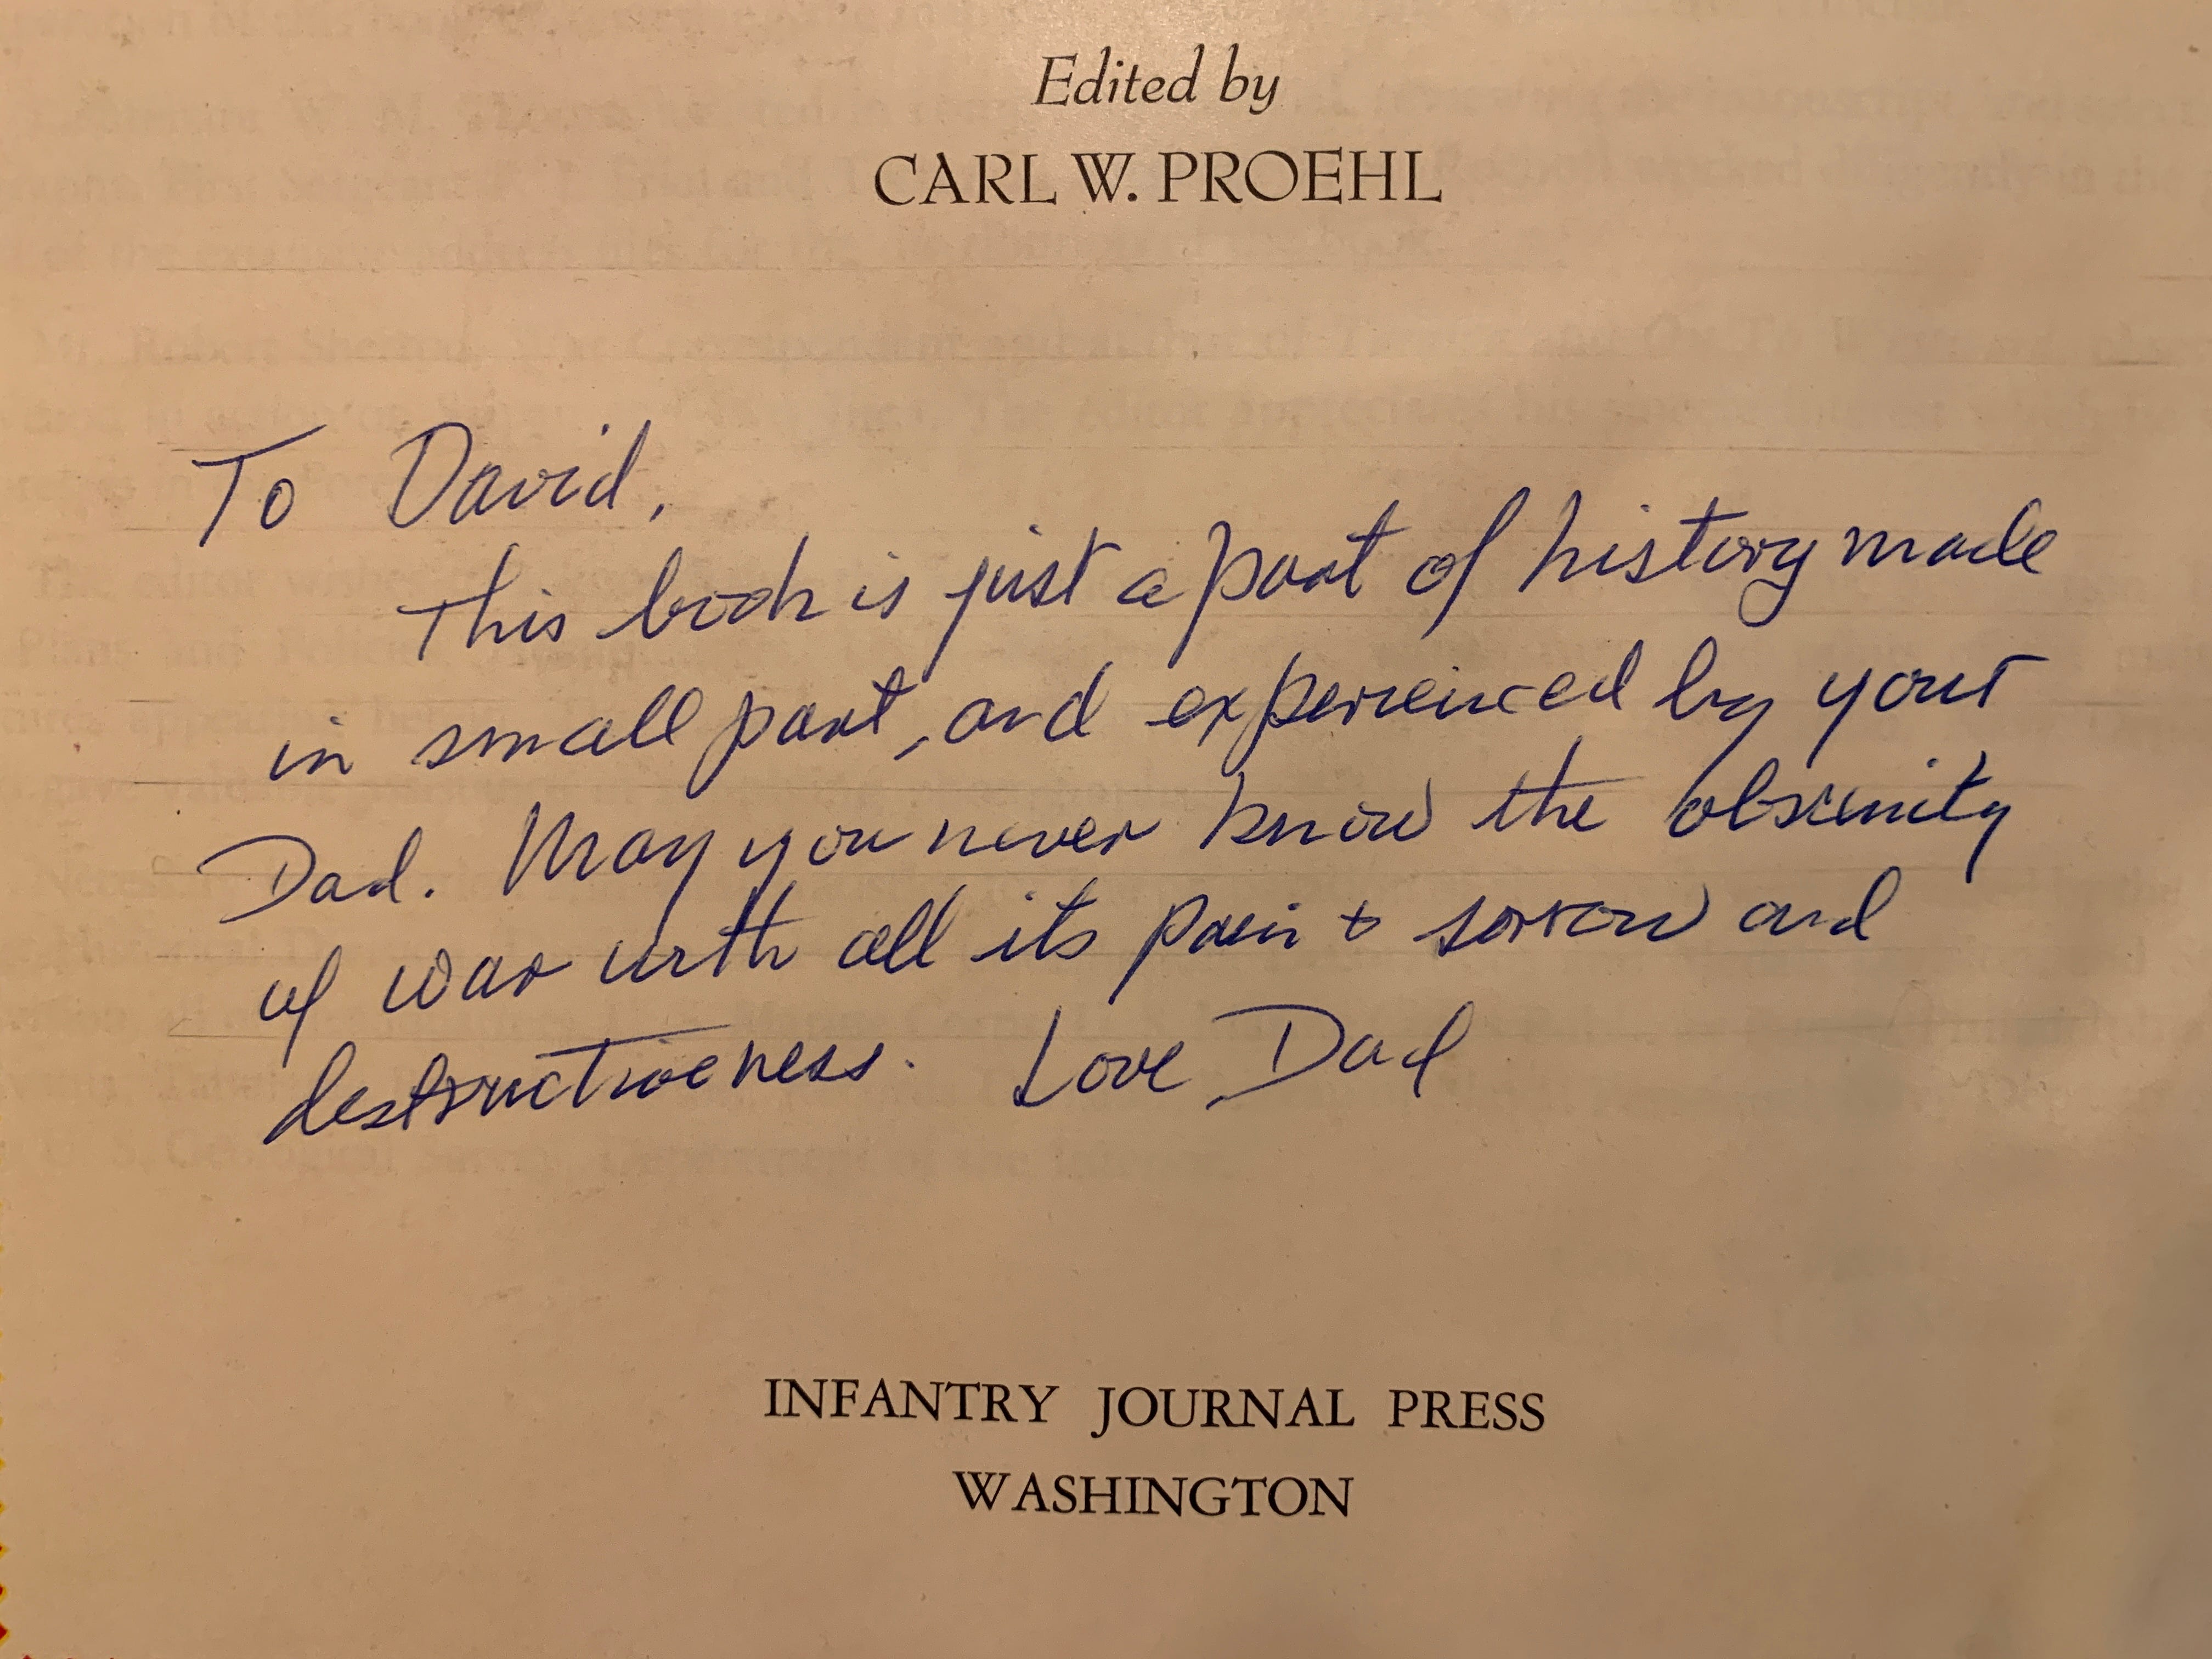 Edited by
CARL W. PROEHL
To David,
This book is just a part of history made
in small part, and experienced by your
Dad. May you never know the obscenity
of war with all its pain & sorrow and
destructiveness. Love, Dad
INFANTRY JOURNAL PRESS
WASHINGTON